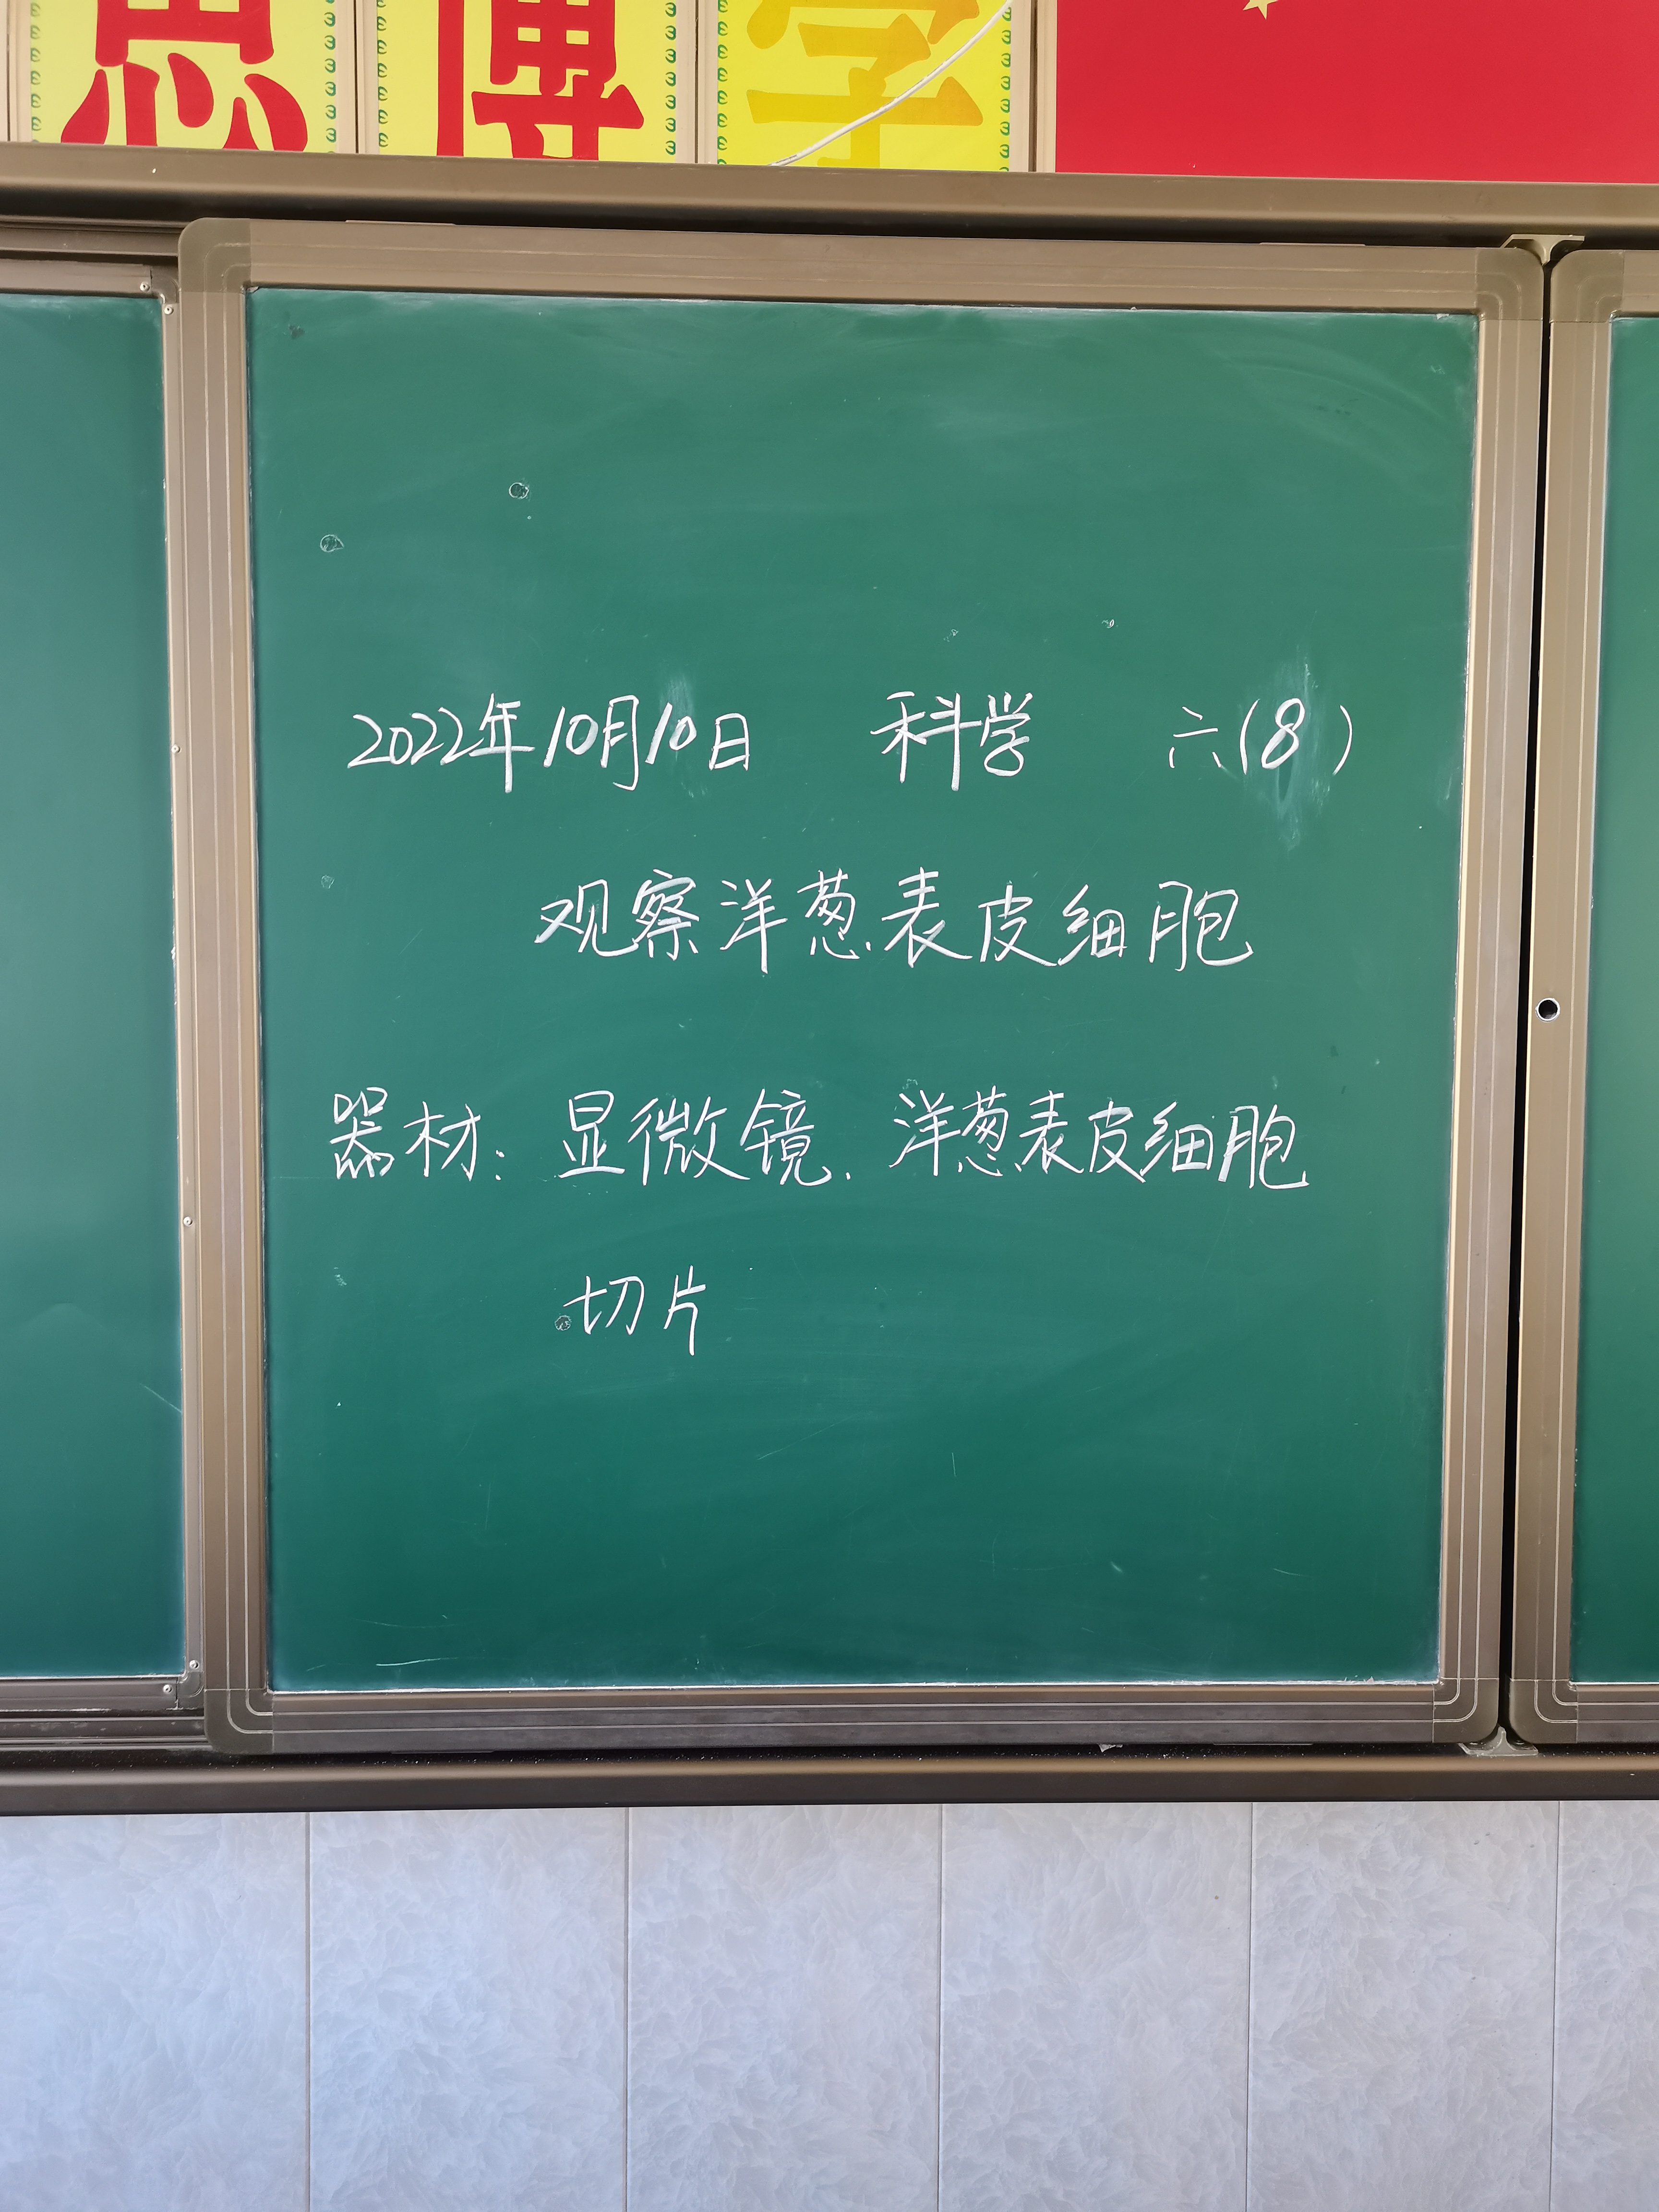 思 博 学
2022年10月10日 科学 六(8)
观察洋葱表皮细胞
器材: 显微镜、洋葱表皮细胞
切片